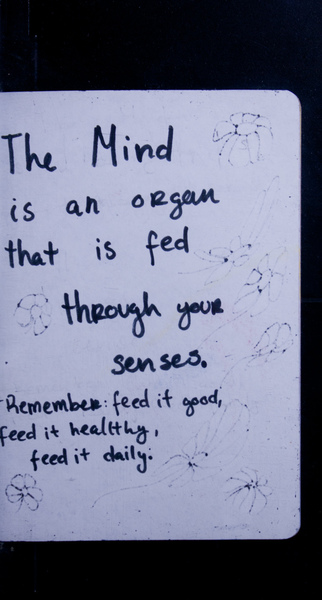 The Mind
is an organ
that is fed
through your
senses.
Remember: feed it good,
feed it healthy,
feed it daily.